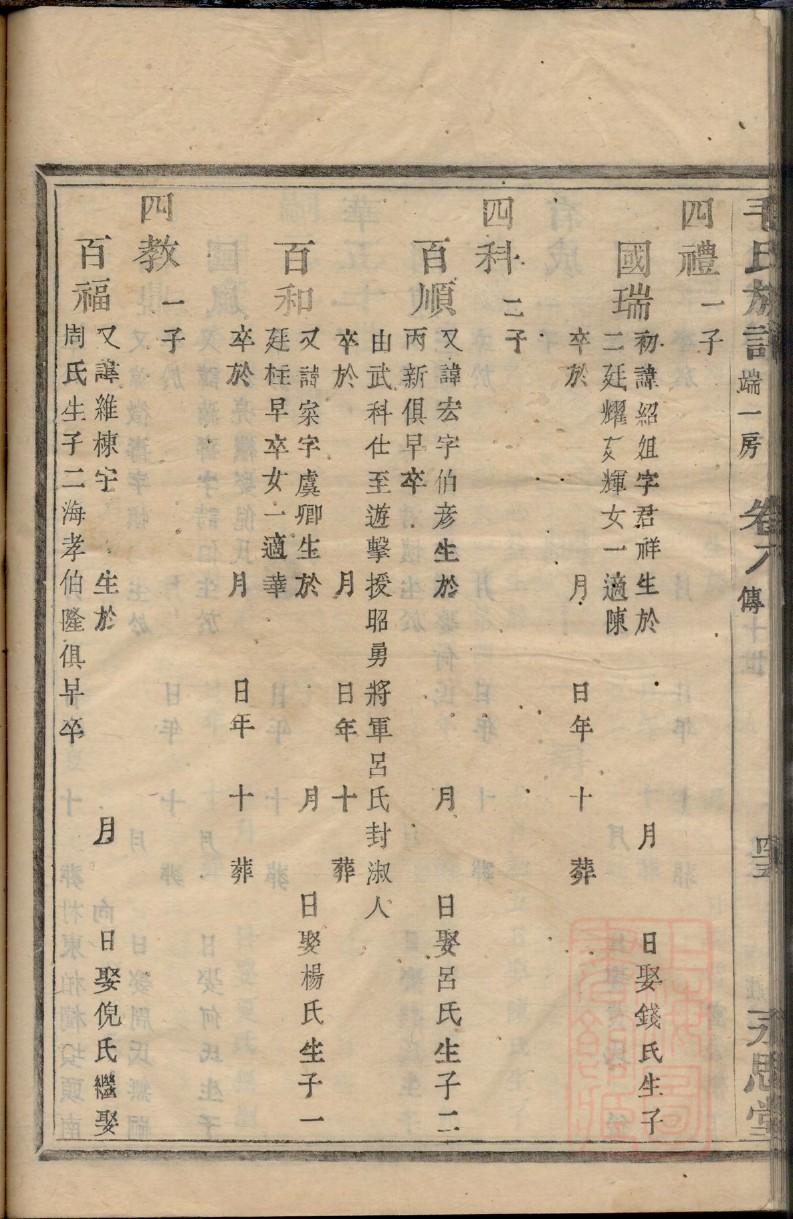 毛氏族譜 端一房 卷八 傳 永思堂
四禮 一子
國瑞 初諱紹姐字君祥生於 月 日娶錢氏生子
二廷耀廷輝女一適陳
卒於 月 日年 十 葬
四科 二子
百順 又諱宏字伯彥生於 月 日娶呂氏生子二
丙新俱早卒
由武科仕至遊擊授昭勇將軍呂氏封淑人
卒於 月 日年 十 葬
百和 又諱寀字虞卿生於 月 日娶楊氏生子一
廷柱早卒女一適華
卒於 月 日年 十 葬
四教 一子
百福 又諱維棟字 生於 月 日娶倪氏繼娶
周氏生子二海孝伯隆俱早卒